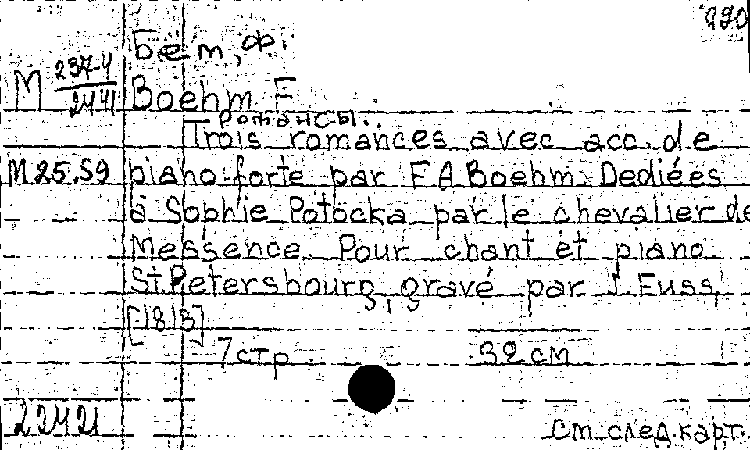 990
Бем, Ф.
М 237-4/2441
Boehm F.
Романсы.
Trois romances avec acc. de
М 25.59 piano-forte par F.A. Boehm. Dediées
à Sophie Potocka par le chevalier de
Messence. Pour chant et piano.
St. Petersbourg, gravé par J. Fuss,
[1813]
7 стр. 32 см
22421
См. след. карт.